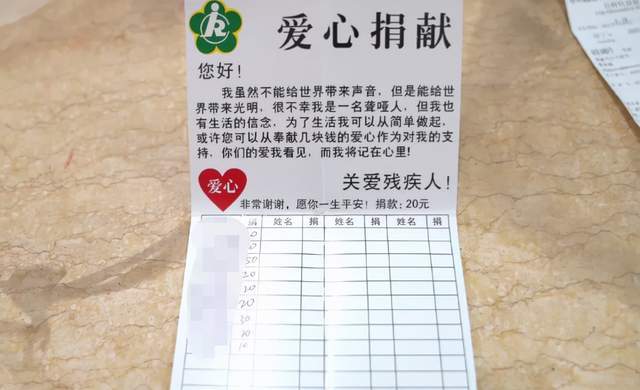 爱心捐献
您好！
我虽然不能给世界带来声音，但是能给世
界带来光明，很不幸我是一名聋哑人，但我也
有生活的信念，为了生活我可以从简单做起，
或许您可以从奉献几块钱的爱心作为对我的支
持，你们的爱我看见，而我将记在心里！
爱心
关爱残疾人！
非常谢谢，愿你一生平安！捐款：20元
捐 姓名 捐 姓名 捐
50
20
20
20
30